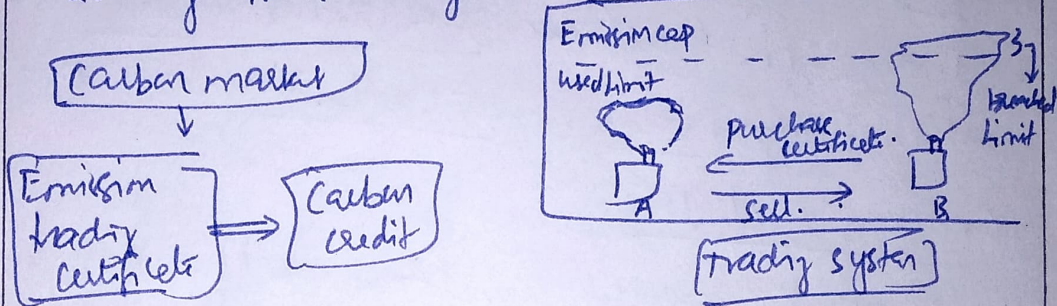 Carbon market
Emission
trading
certificate
Carbon
credit
Emission cap
used limit
purchase
certificate.
sell.
A
B
breached
limit
Trading system